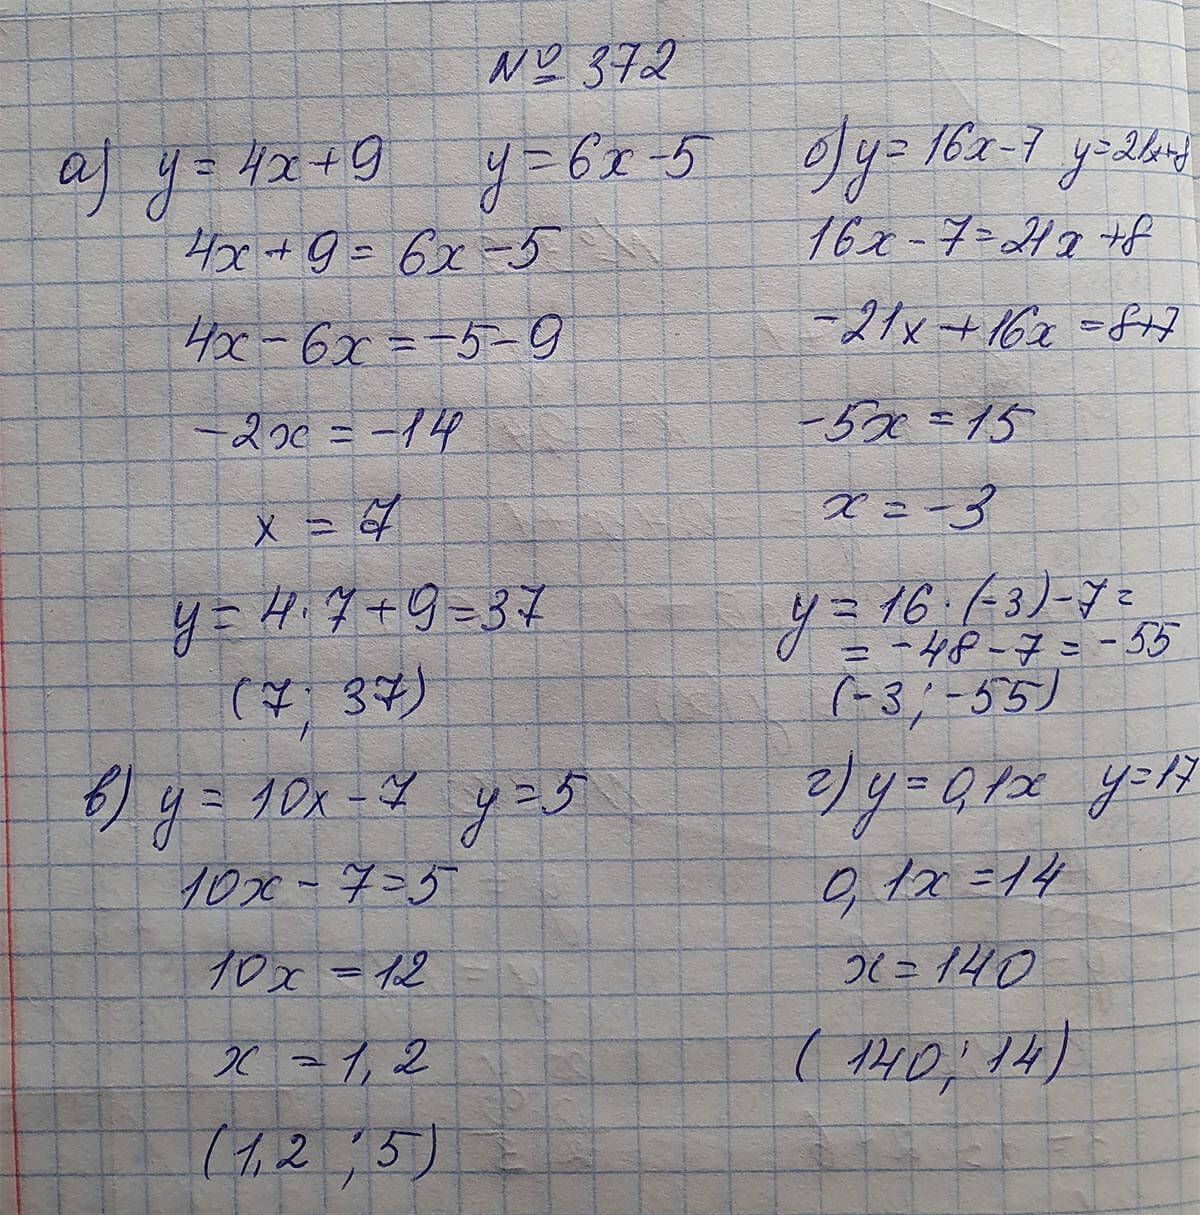 № 372
а) y = 4x + 9   y = 6x - 5
4x + 9 = 6x - 5
4x - 6x = -5 - 9
-2x = -14
x = 7
y = 4 · 7 + 9 = 37
(7; 37)
б) y = 16x - 7   y = 21x + 8
16x - 7 = 21x + 8
-21x + 16x = 8 + 7
-5x = 15
x = -3
y = 16 · (-3) - 7 =
= -48 - 7 = -55
(-3; -55)
в) y = 10x - 7   y = 5
10x - 7 = 5
10x = 12
x = 1,2
(1,2 ; 5)
г) y = 0,1x   y = 17
0,1x = 14
x = 140
(140; 14)